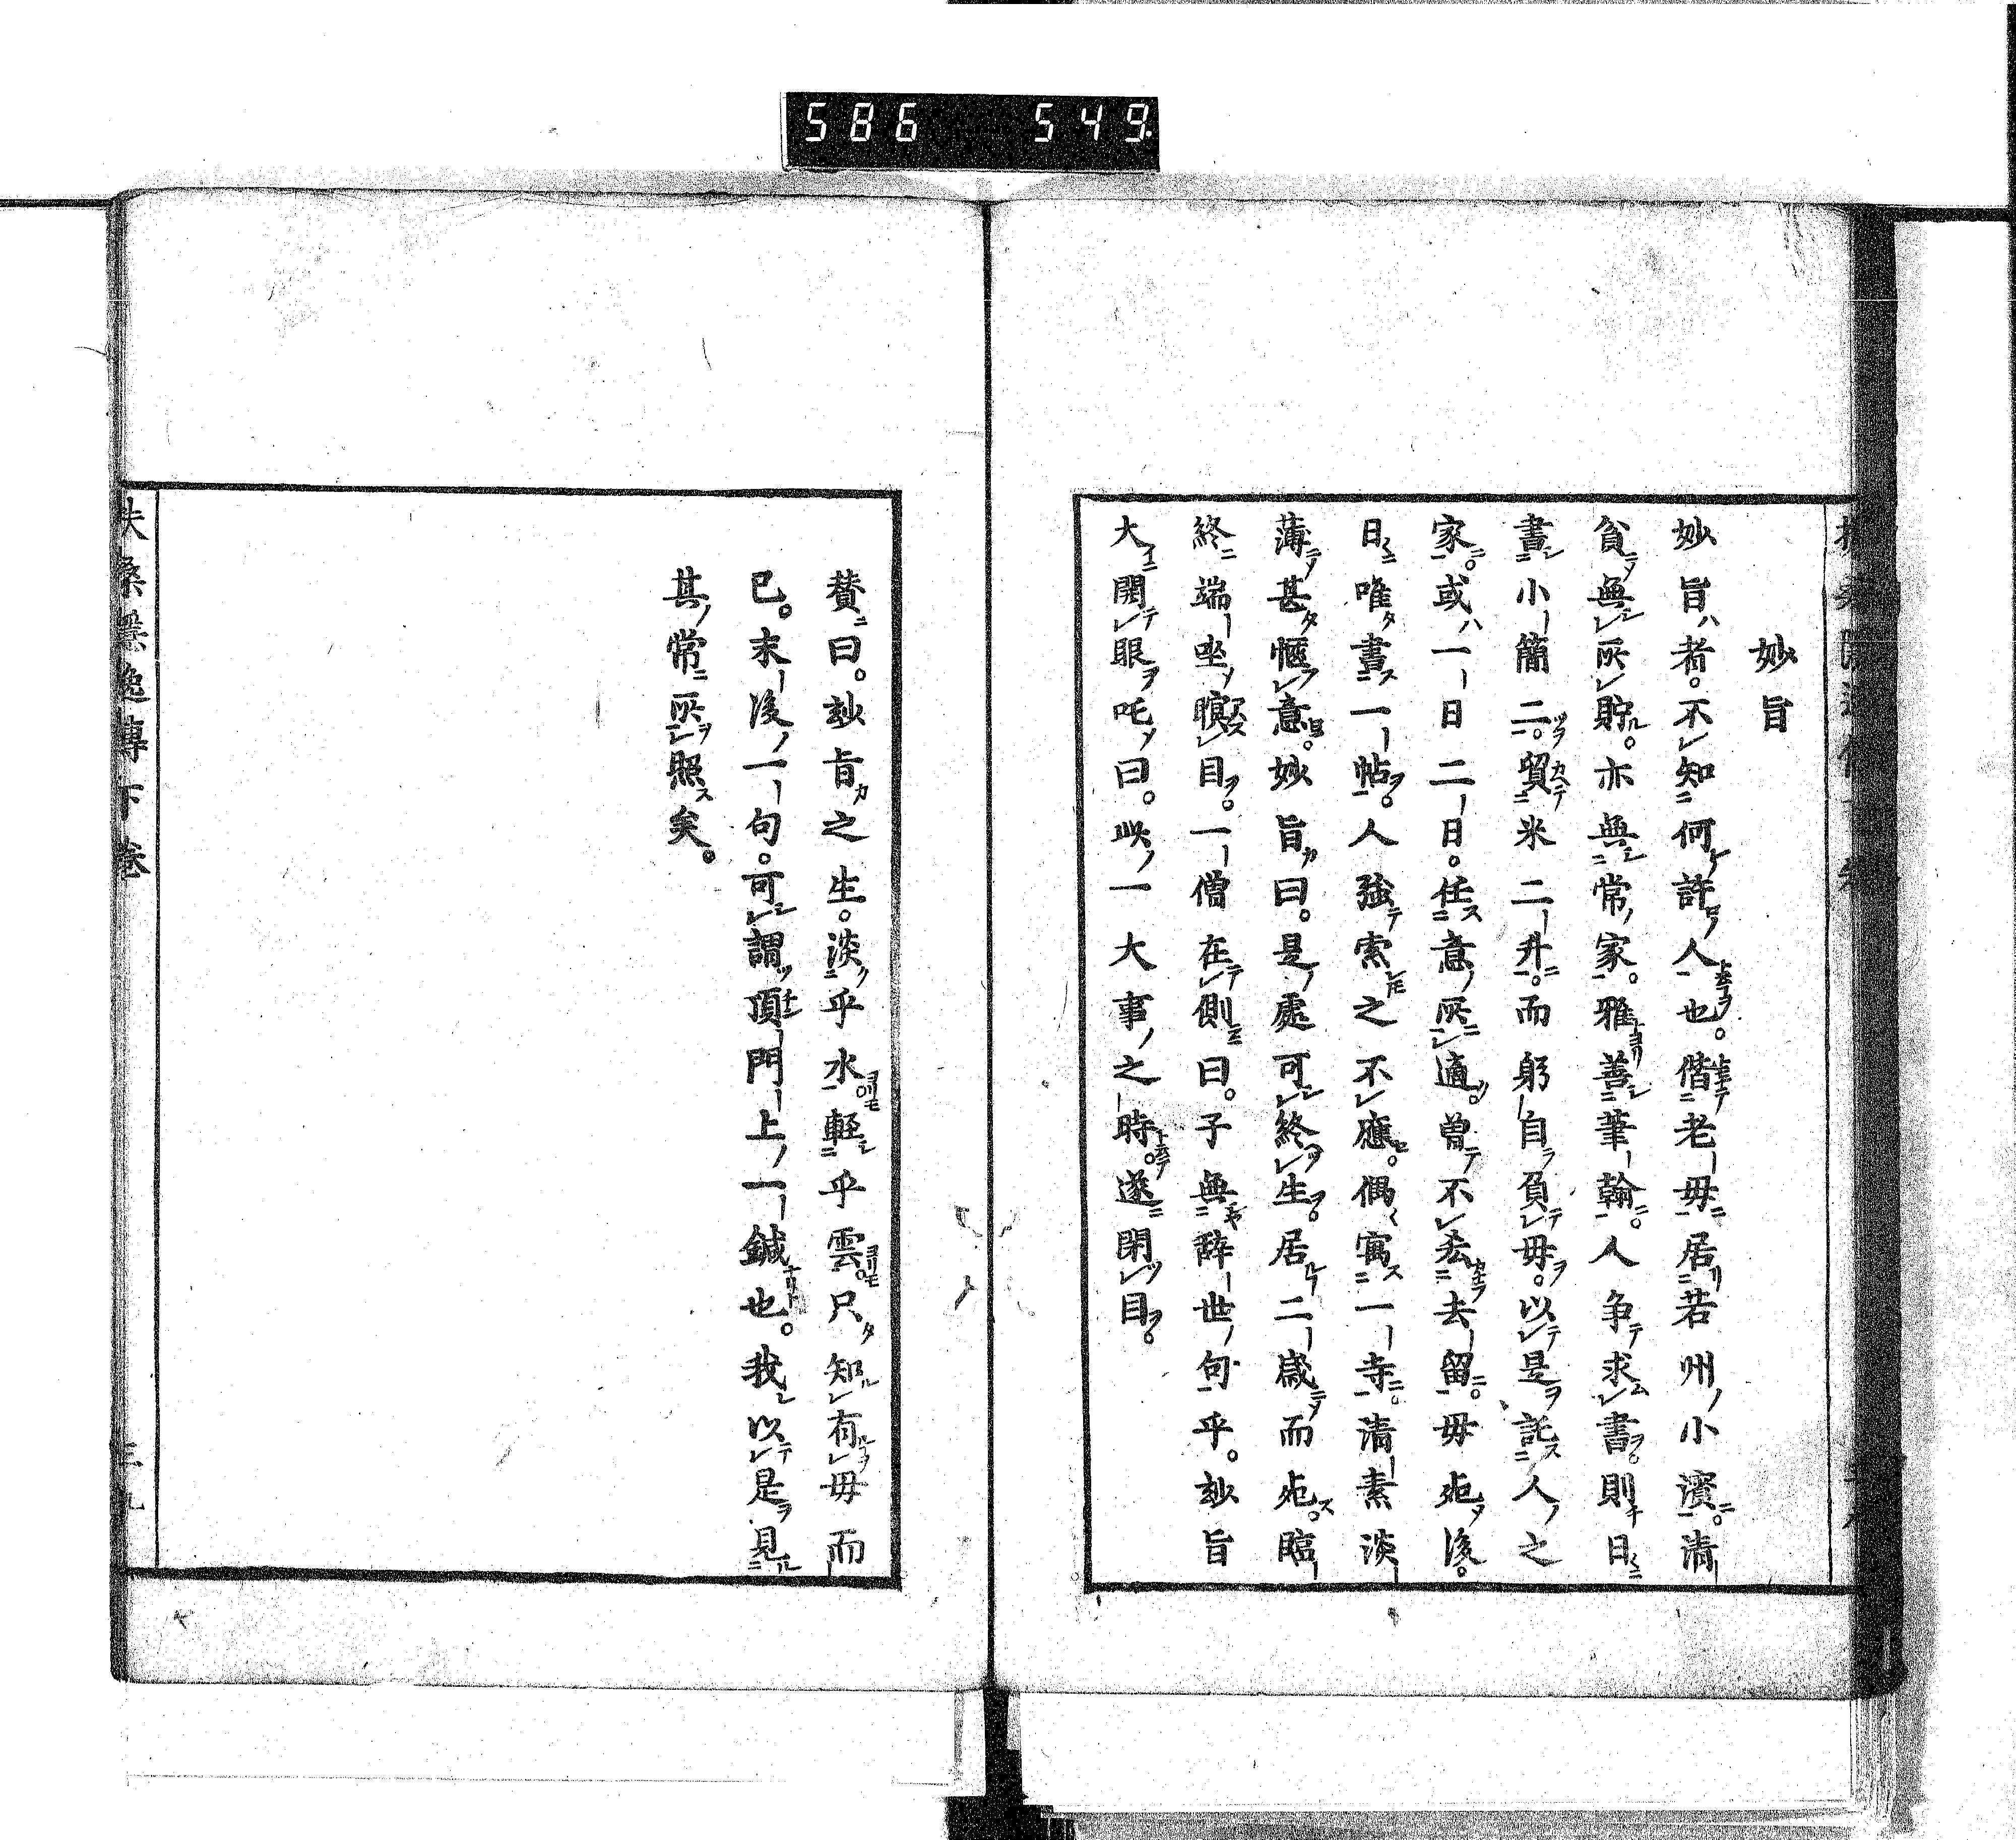 586 549
妙旨
妙旨者。不知何許人也。偕老母居若州小濱。清
貧無所貯。亦無常家。雅善筆翰。人争求書。則日
書小簡二。貿米二升。而躬自負母。以是託人之
家。或一日二日。任意所適。曽不忩去留。母死後。
日唯書一帖。人強索之不應。偶寓一寺。清素淡
薄甚愜意。妙旨曰。是處可終生。居二歳而死。臨
終端坐瞑目。一僧在側曰。子無辞世句乎。玅旨
大開眼吒曰。此一大事之時。遂閉目。
賛曰。玅旨之生。淡乎水軽乎雲。只知有母而
已。末後一句。可謂頂門上一鍼也。我以是見
其常所照矣。
扶桑隱逸傳下卷